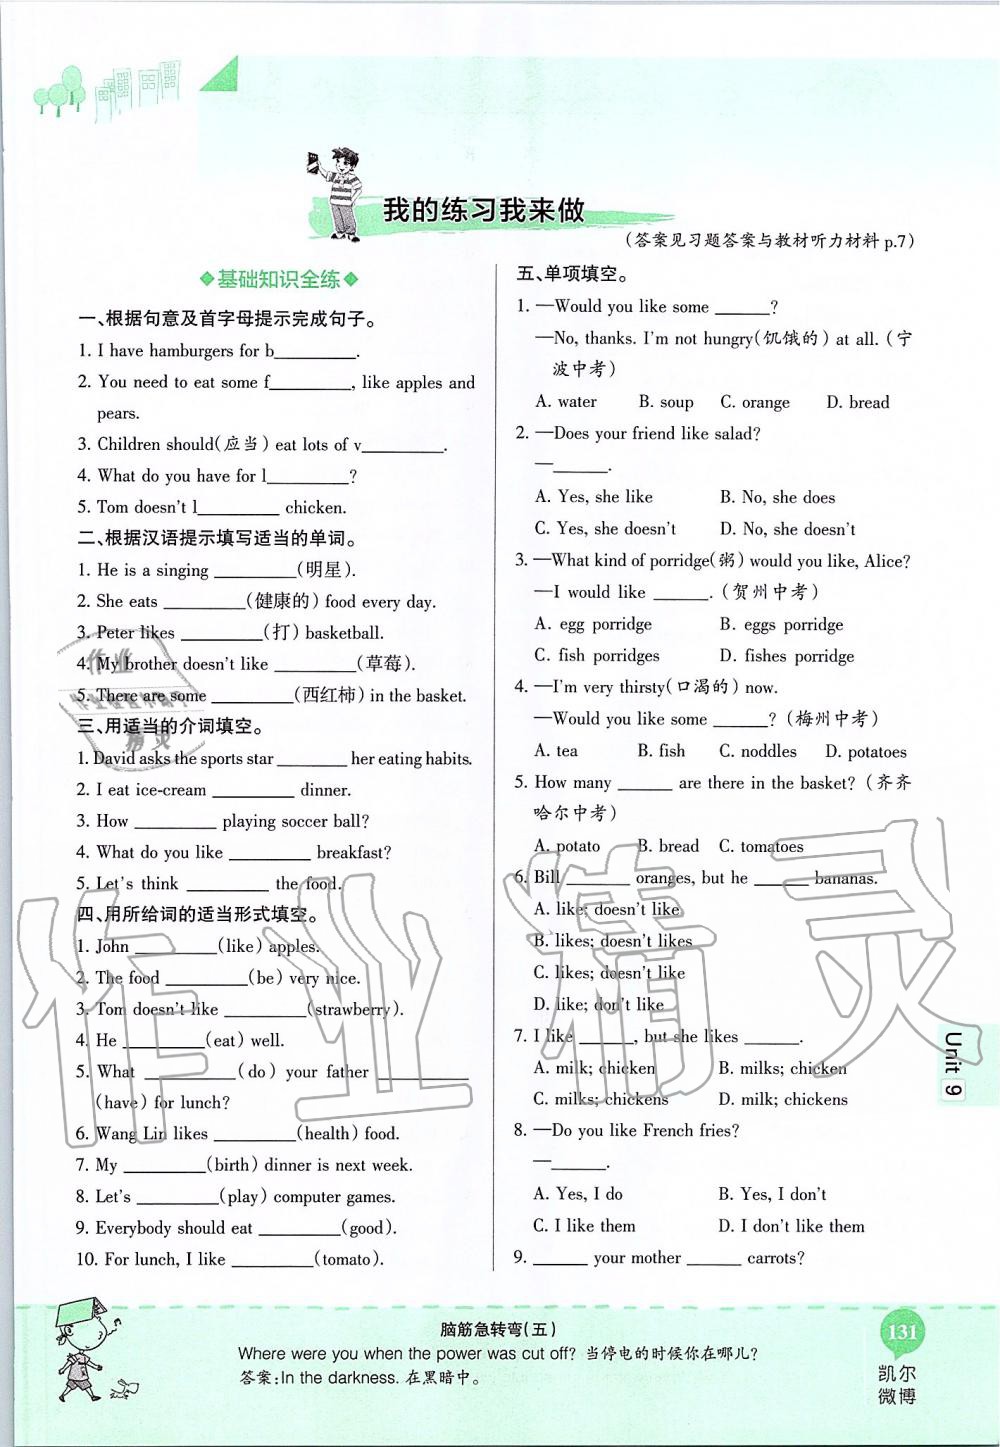 我的练习我来做
(答案见习题答案与教材听力材料 p.7)
基础知识全练
一、根据句意及首字母提示完成句子。
1. I have hamburgers for b_________.
2. You need to eat some f_________, like apples and
pears.
3. Children should(应当) eat lots of v_________.
4. What do you have for l_________?
5. Tom doesn't l_________ chicken.
二、根据汉语提示填写适当的单词。
1. He is a singing _________(明星).
2. She eats _________(健康的) food every day.
3. Peter likes _________(打) basketball.
4. My brother doesn't like _________(草莓).
5. There are some _________(西红柿) in the basket.
三、用适当的介词填空。
1. David asks the sports star _________ her eating habits.
2. I eat ice-cream _________ dinner.
3. How _________ playing soccer ball?
4. What do you like _________ breakfast?
5. Let's think _________ the food.
四、用所给词的适当形式填空。
1. John _________(like) apples.
2. The food _________(be) very nice.
3. Tom doesn't like _________(strawberry).
4. He _________(eat) well.
5. What _________(do) your father _________
(have) for lunch?
6. Wang Lin likes _________(health) food.
7. My _________(birth) dinner is next week.
8. Let's _________(play) computer games.
9. Everybody should eat _________(good).
10. For lunch, I like _________(tomato).
五、单项填空。
1. —Would you like some ______?
—No, thanks. I'm not hungry(饥饿的) at all. (宁
波中考)
A. water B. soup C. orange D. bread
2. —Does your friend like salad?
—______.
A. Yes, she like B. No, she does
C. Yes, she doesn't D. No, she doesn't
3. —What kind of porridge(粥) would you like, Alice?
—I would like ______. (贺州中考)
A. egg porridge B. eggs porridge
C. fish porridges D. fishes porridge
4. —I'm very thirsty(口渴的) now.
—Would you like some ______? (梅州中考)
A. tea B. fish C. noddles D. potatoes
5. How many ______ are there in the basket? (齐齐
哈尔中考)
A. potato B. bread C. tomatoes
6. Bill ______ oranges, but he ______ bananas.
A. like; doesn't like
B. likes; doesn't likes
C. likes; doesn't like
D. likes; don't like
7. I like ______, but she likes ______.
A. milk; chicken B. milks; chicken
C. milks; chickens D. milk; chickens
8. —Do you like French fries?
—______.
A. Yes, I do B. Yes, I don't
C. I like them D. I don't like them
9. ______ your mother ______ carrots?
Unit 9
脑筋急转弯(五)
Where were you when the power was cut off? 当停电的时候你在哪儿?
答案:In the darkness. 在黑暗中。
131
凯尔
微博
作业精灵
作业
精灵